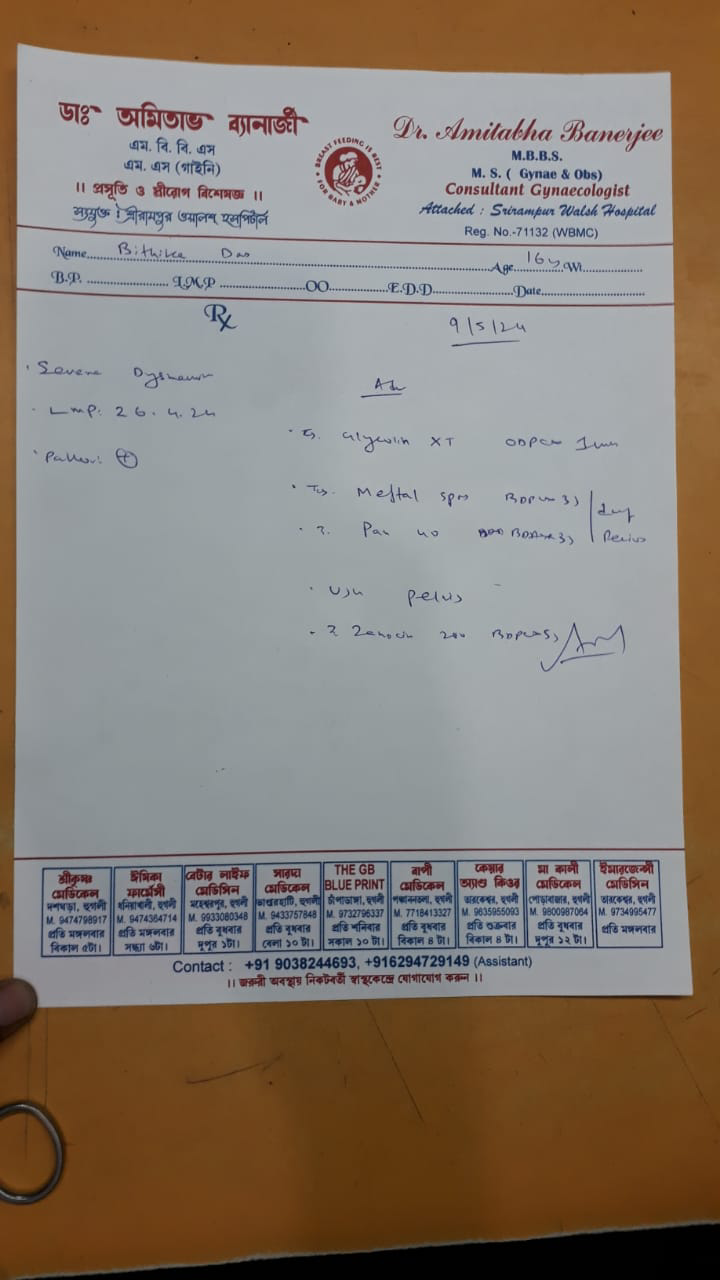 ডাঃ অমিতাভ ব্যানার্জী
এম. বি. বি. এস
এম. এস (গাইনি)
।। প্রসূতি ও স্ত্রীরোগ বিশেষজ্ঞ ।।
সংযুক্ত : শ্রীরামপুর ওয়ালশ হসপিটাল
BREAST FEEDING IS BEST
FOR BABY & MOTHER
Dr. Amitabha Banerjee
M.B.B.S.
M. S. ( Gynae & Obs)
Consultant Gynaecologist
Attached : Srirampur Walsh Hospital
Reg. No.-71132 (WBMC)
Name Bithika Das Age 16y Wt.
B.P. L.M.P OO E.D.D Date
Rx
9/5/24
Severe
Adv
LMP: 26.4.24
XT
Pallor: +
Meftal spas
Pan 40
USG pelvis
200
শ্রীকৃষ্ণ
মেডিকেল
দশঘড়া, হুগলী
M. 9474798917
প্রতি মঙ্গলবার
বিকাল ৫টা।
ঈশিকা
ফার্মেসী
ধনিয়াখালী, হুগলী
M. 9474364714
প্রতি মঙ্গলবার
সন্ধ্যা ৬টা।
বেটার লাইফ
মেডিসিন
মহেশ্বরপুর, হুগলী
M. 9933080348
প্রতি বুধবার
দুপুর ১টা।
সারদা
মেডিকেল
M. 9433757848
প্রতি বুধবার
বেলা ১০ টা।
THE GB
BLUE PRINT
চাঁপাডাঙ্গা, হুগলী
M. 9732796337
প্রতি শনিবার
সকাল ১০ টা।
বাণী
মেডিকেল
M. 7718413327
প্রতি বুধবার
বিকাল ৪ টা।
কেয়ার
অ্যান্ড কিওর
তারকেশ্বর, হুগলী
M. 9635955093
প্রতি শুক্রবার
বিকাল ৪ টা।
মা কালী
মেডিকেল
পোড়াবাজার, হুগলী
M. 9800987064
প্রতি বুধবার
দুপুর ১২ টা।
ইমারজেন্সী
মেডিসিন
তারকেশ্বর, হুগলী
M. 9734995477
প্রতি মঙ্গলবার
Contact : +91 9038244693, +916294729149 (Assistant)
।। জরুরী অবস্থায় নিকটবর্তী স্বাস্থ্যকেন্দ্রে যোগাযোগ করুন ।।